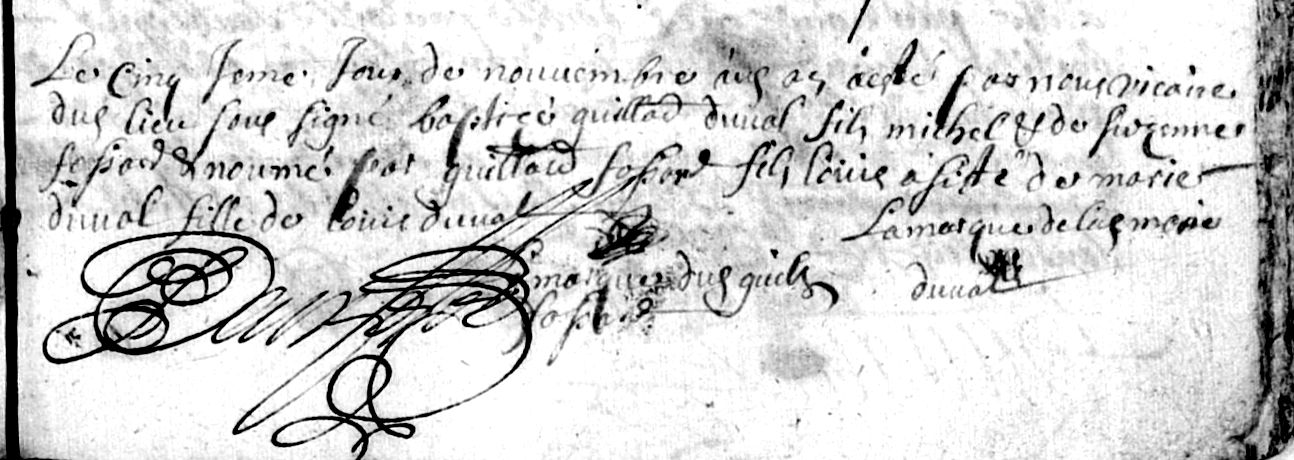 Le cinq Jeme Jour de nouuembre aus an a esté par nous vicaire
dus lieu sous signé bapticé guillad duual fils michel & de suzenne
fossard & noumé par guillaud fossard fils louis asisté de marie
duual fille de louis duual
La marque de las marie
marque dus guils
duual
fossard